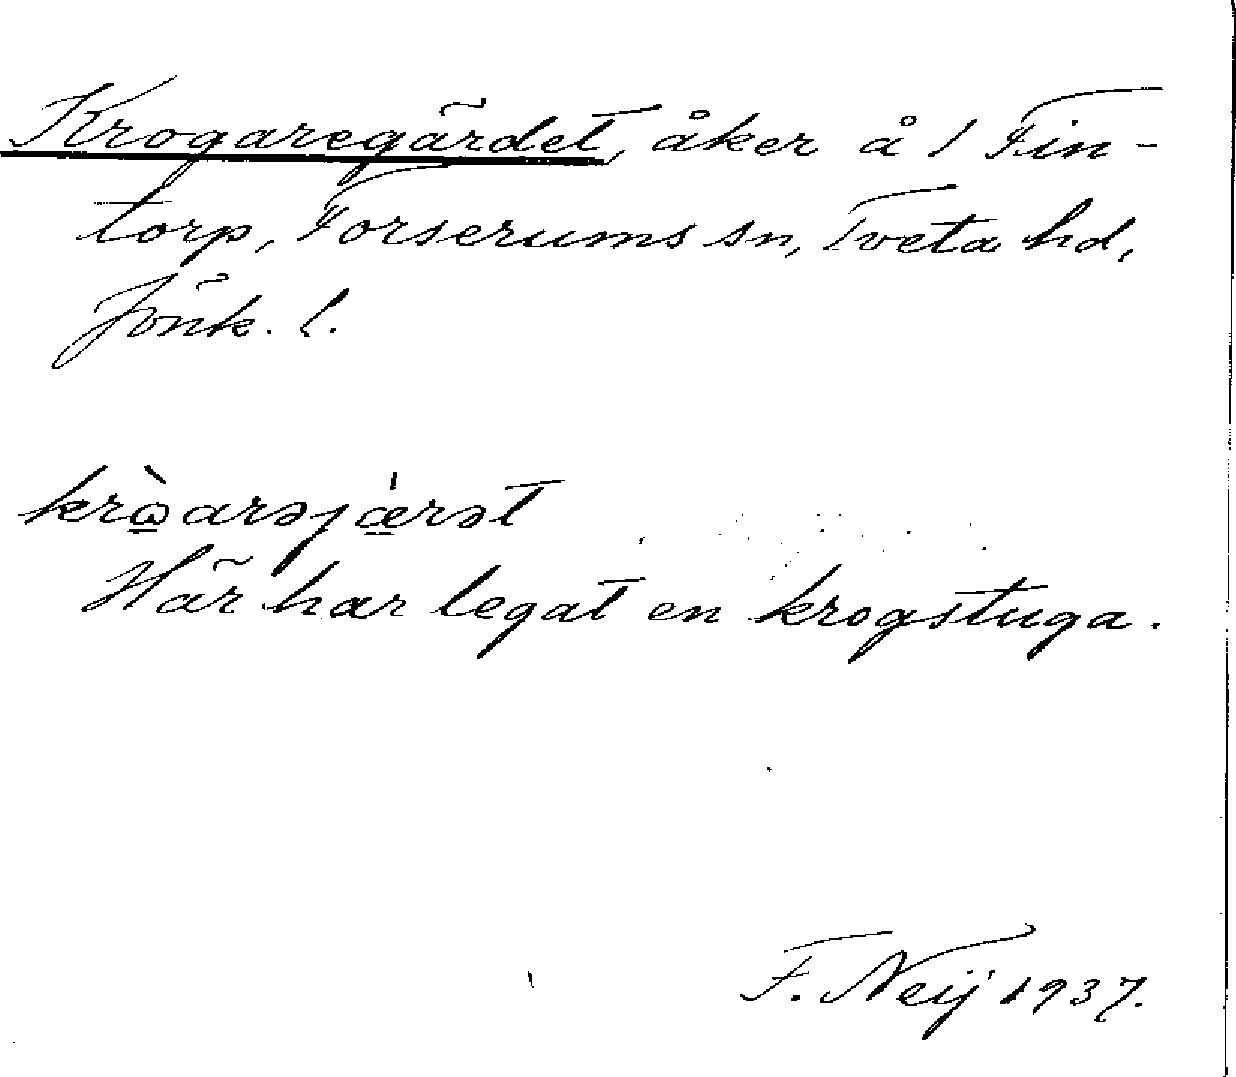 Krogaregärdet, åker å 1 Fin-
torp, Forserums sn, Tveta hd,
Jönk. l.
krɷ̀arəjǽrət
Här har legat en krogstuga.
F. Neij 1937.